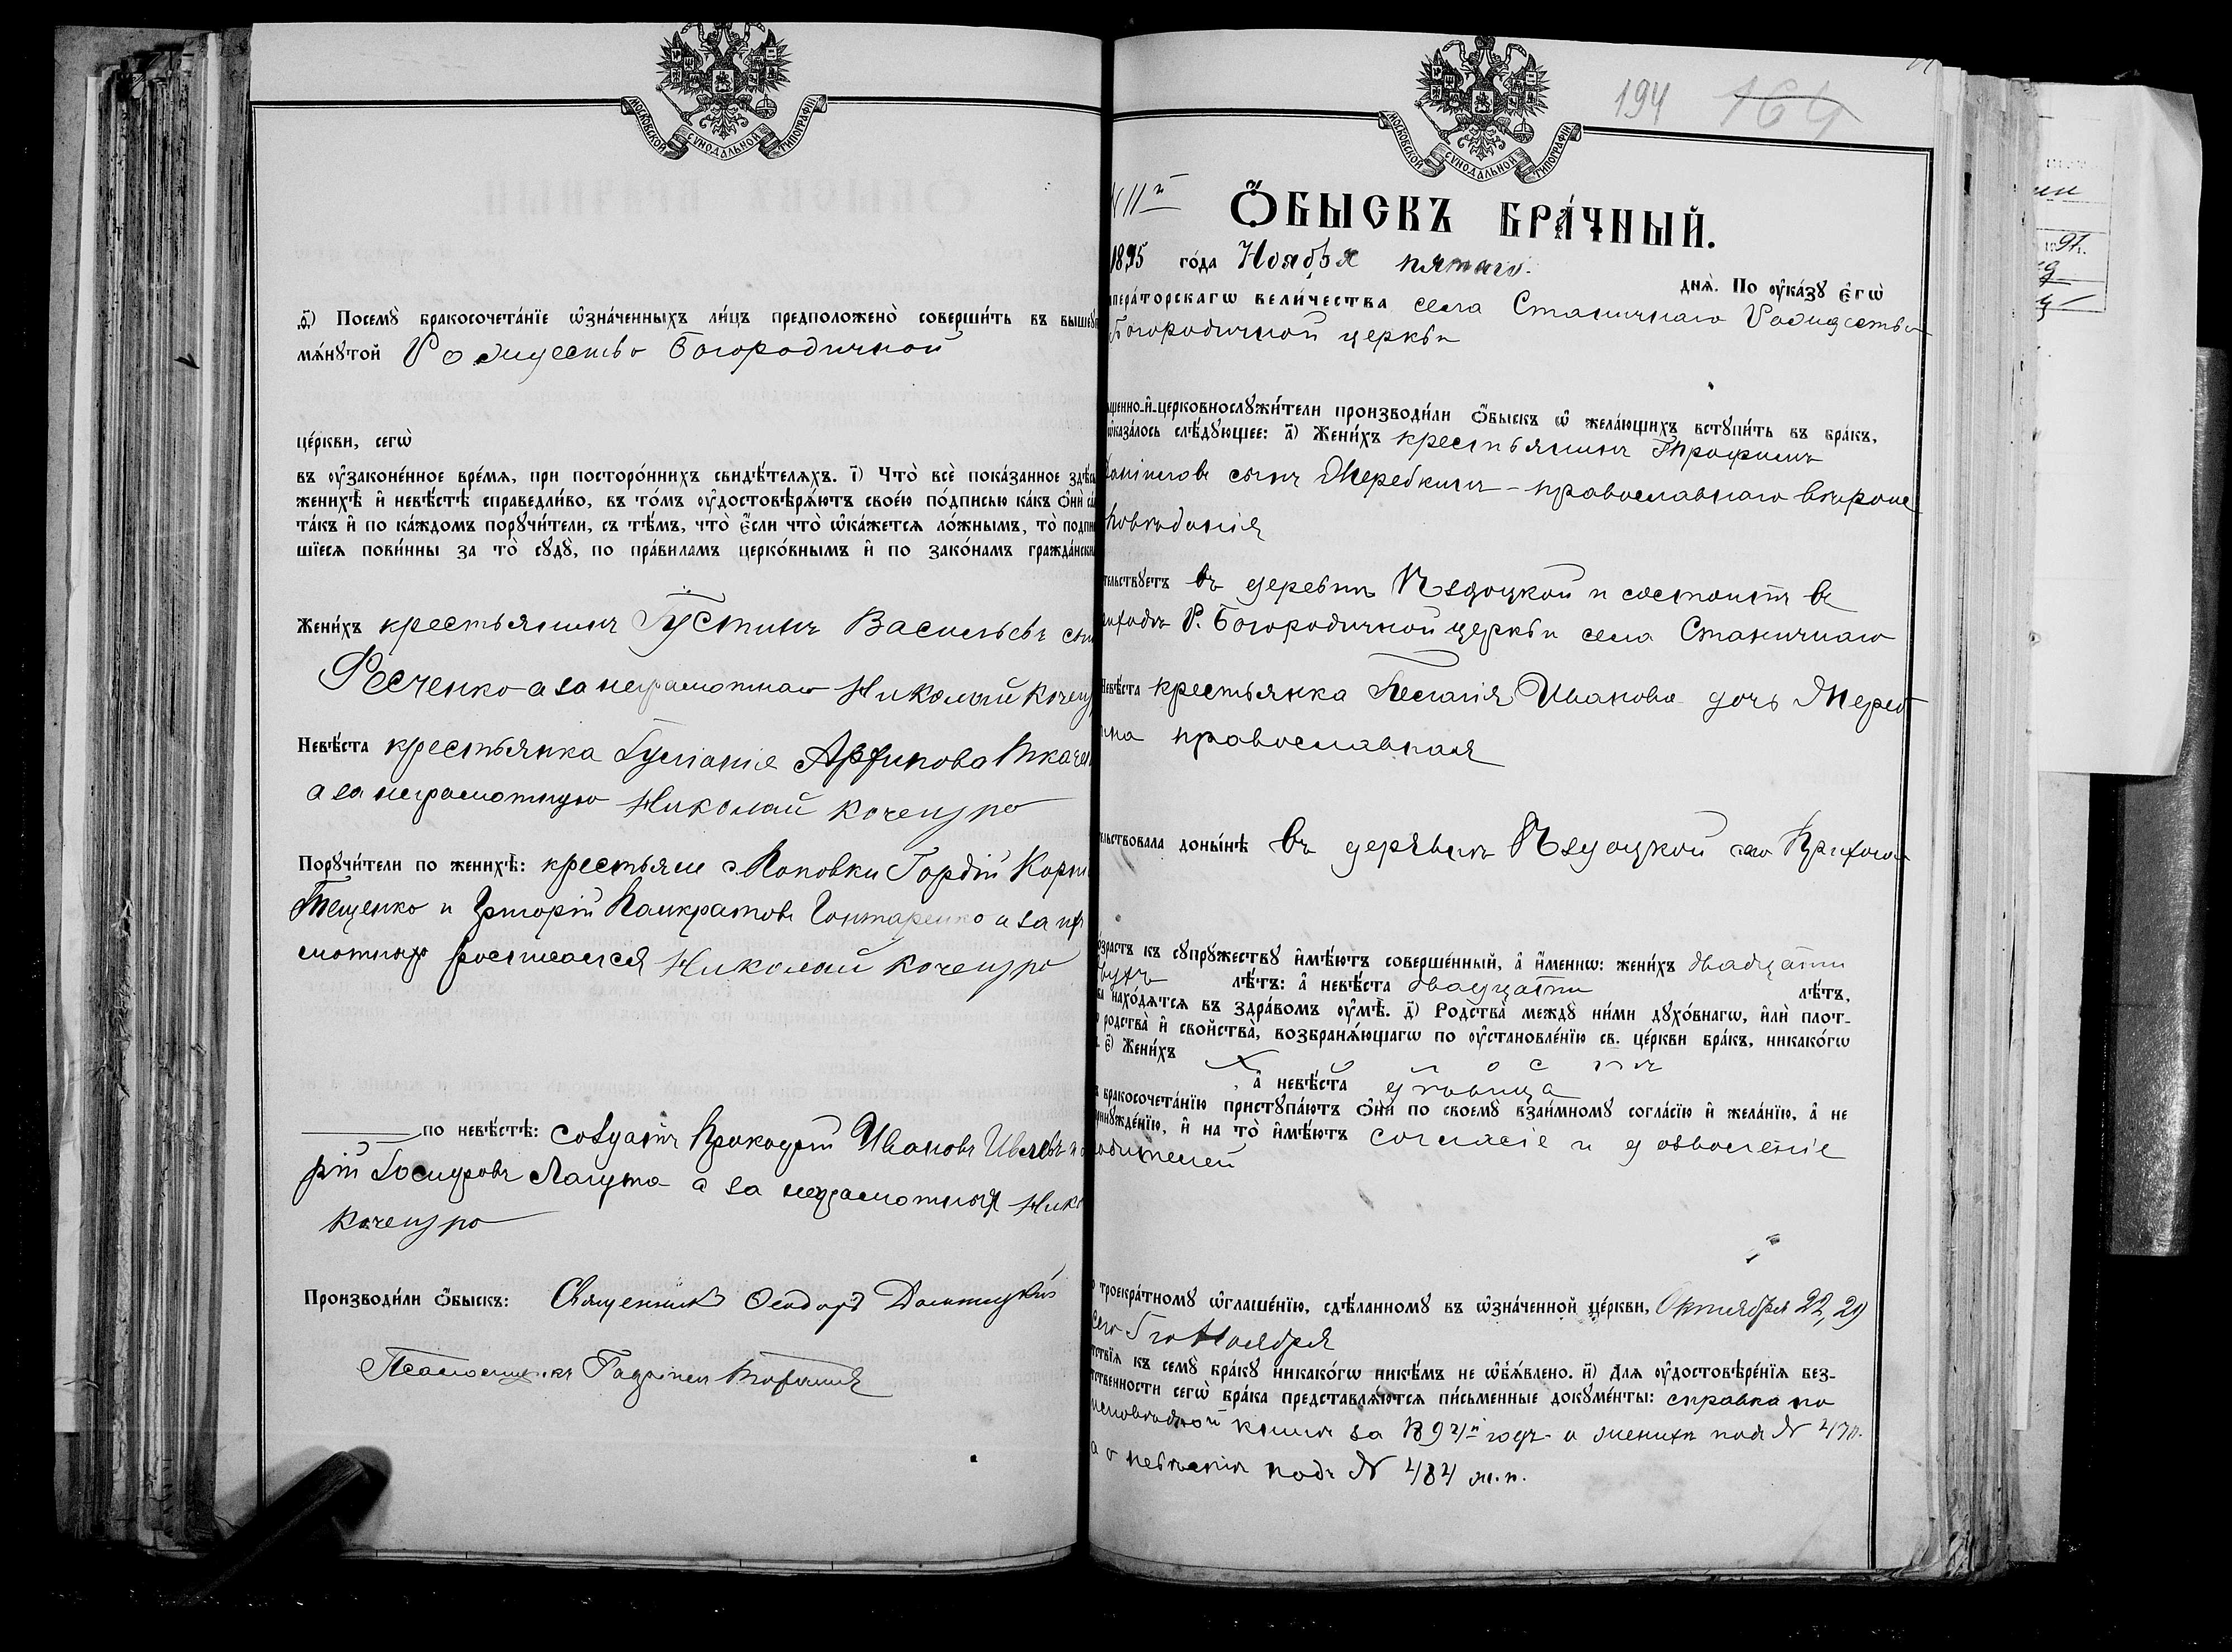 МОСКОВСКОЙ СѴНОДАЛЬНОЙ ТИПОГРАФІИ
ѳ҃) Посемꙋ̀ бракосочета́нїе ѡ҆зна́ченныхъ ли́цъ предположено̀ соверши́ть въ вышеꙋ
мѧ́нꙋтой Рождество Богородичной
це́ркви, сегѡ̀
въ ᲂу҆законе́нное вре́мѧ, при посторо́ннихъ свидѣ́телѧхъ. і҃) Что̀ всѐ пока́занное здѣ́сь
женихѣ̀ и҆ невѣ́стѣ справедли́во, въ то́мъ ᲂу҆достовѣрѧ́ютъ свое́ю по́дписью ка́къ ѻ҆нѝ са
та́къ и҆ по ка́ждомъ порꙋчи́тели, съ тѣ́мъ, что̀ є҆́сли что̀ ѡ҆ка́жется ло́жнымъ, то̀ подпи
шїесѧ пови́нны за то̀ сꙋдꙋ̀, по пра́виламъ церко́внымъ и҆ по зако́намъ гражда́нски
Жени́хъ крестьянинъ Іустинъ Васильевъ сы
Фесченко а за неграмотнаго Николай Коченз
Невѣ́ста крестьянка Іуліанія Арфипова Ткаче
а за неграмотную Николай Кочензро
Порꙋчи́тели по женихѣ̀: крестьяне с. Поповки Гордій Корни
Тещенко и Григорій Панкратовъ Гонтаренко а за не
мотныхъ росписался Николай Кочензро
по невѣ́стѣ: солдатъ Прокофій Ивановъ Ивлевъ и
рій Лагута а за неграмотныхъ Нико
Кочензро
Производи́ли ѻ҆́быскъ: Священникъ Ѳеодоръ
Псаломщикъ
МОСКОВСКОЙ СѴНОДАЛЬНОЙ ТИПОГРАФІИ
194 164
N 11й
Ѻ҆́БЫСКЪ БРА́ЧНЫЙ.
1895 го́да Ноября пятаго днѧ̀. По ᲂу҆ка́зꙋ є҆гѡ̀
мпера́торскагѡ вели́чества села Станичнаго Рождество
Богородичной церкви
щенно-и҆-церковнослꙋжи́тели производи́ли ѻ҆́быскъ ѡ҆ жела́ющихъ встꙋпи́ть въ бра́къ,
ѡ҆каза́лось слѣ́дꙋющее: а҃) Жени́хъ крестьянинъ Трофимъ
Даніиловъ сынъ Жеребкинъ - православнаго вѣроис
повѣданія
тельствꙋетъ въ деревнѣ и состоитъ въ
приходѣ Р. Богородичной церкви села Станичнаго
Невѣ́ста крестьянка Пелагія Иванова дочь Жереб
кина православная
ельствовала доны́нѣ въ деревнѣ сего прихода
о́зрастъ къ сꙋпрꙋ́жествꙋ и҆мѣ́ютъ соверше́нный, а҆ и҆́менно: жени́хъ двадцати
двухъ лѣ́тъ: а҆ невѣ́ста двадцати лѣ́тъ,
ба нахо́дятся въ здра́вомъ ᲂу҆мѣ̀. д҃) Родства̀ междꙋ ни́ми дꙋхо́внагѡ, и҆лѝ плот-
о родства̀ и҆ свойства̀, возбранѧ́ющагѡ по ᲂу҆становле́нїю св. це́ркви бра́къ, никако́гѡ
е҃) Жени́хъ холостъ
, а҆ невѣ́ста дѣвица
ъ бракосочета́нїю пристꙋпа́ютъ ѻ҆нѝ по своемꙋ̀ взаи́мномꙋ согла́сїю и҆ жела́нїю, а҆ не
инꙋжде́нїю, и҆ на то̀ и҆мѣ́ютъ согласіе и дозволеніе
родителей
о троекра́тномꙋ ѡ҆глаше́нїю, сдѣ́ланномꙋ въ ѡ҆зна́ченной це́ркви, Октября 22, 29
сего Ноября
тствїѧ къ семꙋ̀ бра́кꙋ никако́гѡ никѣ́мъ не ѡ҆б̾ѧ́влено. и҃) Длѧ ᲂу҆достовѣре́нїѧ без-
тственности сегѡ̀ бра́ка представлѧ́ются пи́сьменные докꙋме́нты: справка по
исповѣдной книгѣ за 1894й годъ о женихѣ подъ N
а о невѣстѣ подъ N 484 ж.п.